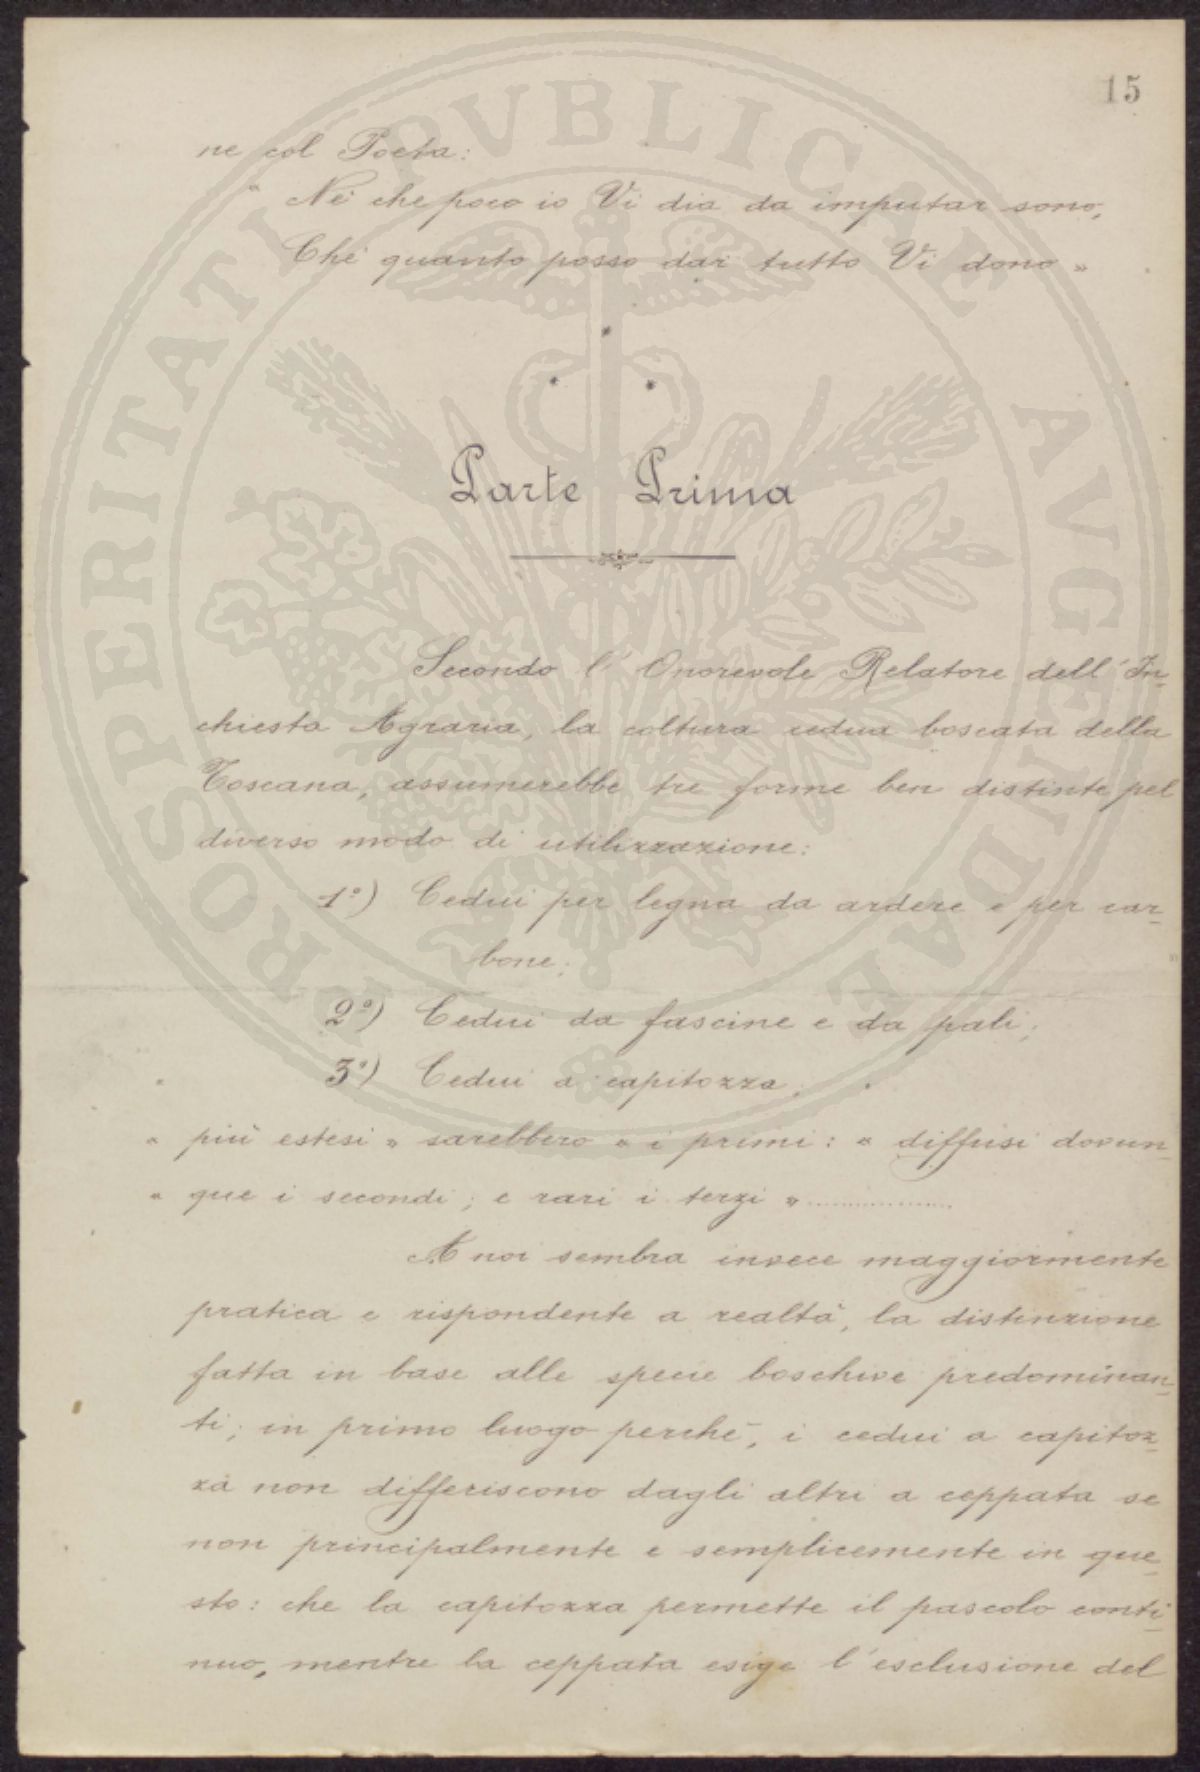 15
ne col Poeta:
" Nè che poco io Vi dia da imputar sono,
Chè quanto posso dar tutto Vi dono "
*
* *
Parte Prima
Secondo l'Onorevole Relatore dell'In-
chiesta Agraria, la coltura cedua boscata della
Toscana, assumerebbe tre forme ben distinte pel
diverso modo di utilizzazione:
1°) Cedui per legna da ardere e per car-
bone;
2°) Cedui da fascine e da pali;
3°) Cedui a capitozza;
" più estesi " sarebbero " i primi: " diffusi dovun-
" que i secondi; e rari i terzi " ................
A noi sembra invece maggiormente
pratica e rispondente a realtà, la distinzione
fatta in base alle specie boschive predominan-
ti; in primo luogo perchè, i cedui a capitoz-
za non differiscono dagli altri a ceppata se
non principalmente e semplicemente in que-
sto: che la capitozza permette il pascolo conti-
nuo, mentre la ceppata esige l'esclusione del
PROSPERITATI PVBLICAE AVGENDAE